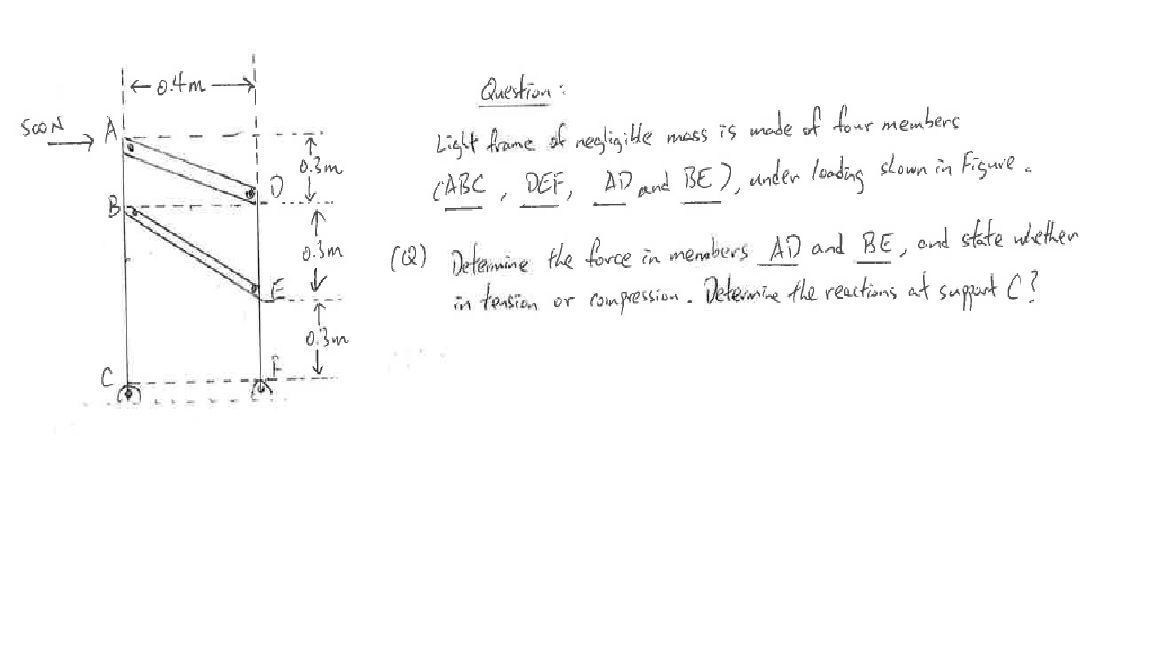 ← 0.4m →
500N
A
0.3m
D
B
0.3m
E
0.3m
C
F
Question:
Light frame of negligible mass is made of four members
(ABC, DEF, AD and BE), under loading shown in Figure.
(Q) Determine the force in members AD and BE, and state whether
in tension or compression. Determine the reactions at support C?